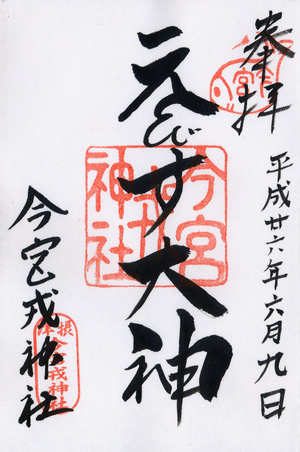 奉拝
平成廿六年六月九日
えびす大神
今宮戎神社
今宮神社
摂津今宮戎神社